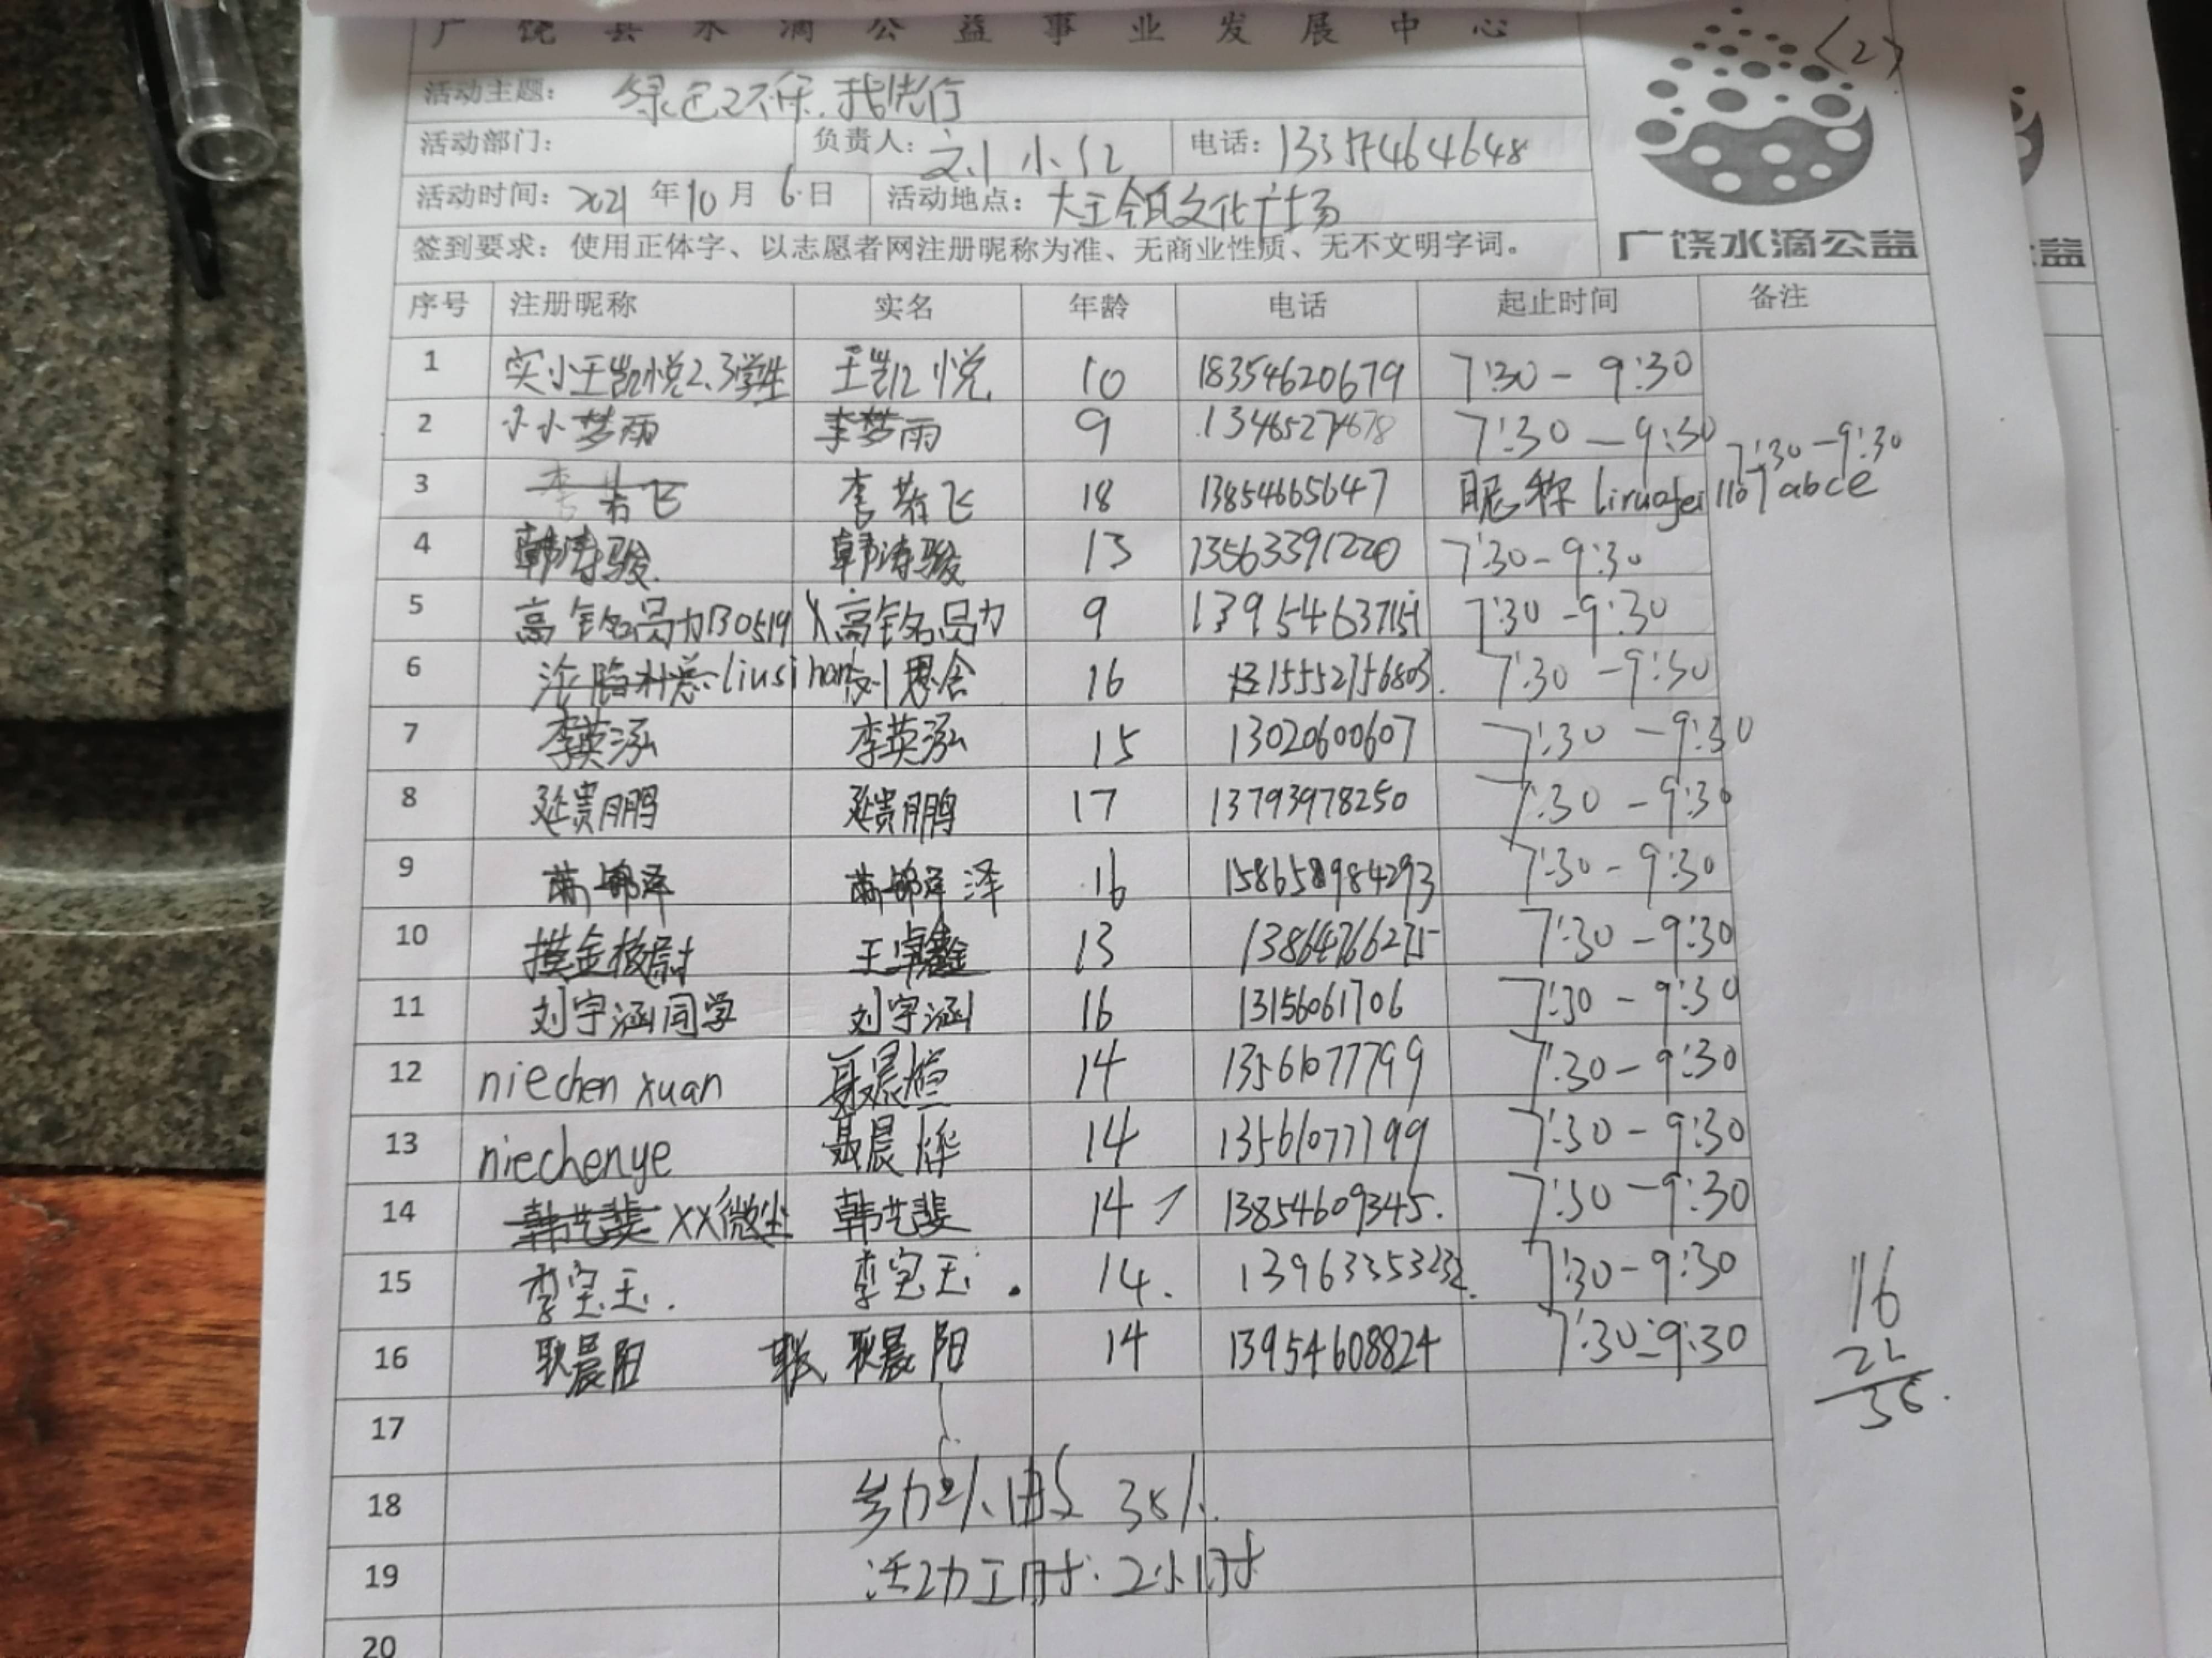 广饶县水滴公益事业发展中心
〈2〉
活动主题： 绿色环保.我先行
活动部门： 负责人：刘小红 电话：13354464648
活动时间：2021年10月6日 活动地点：大王镇文化广场
签到要求：使用正体字、以志愿者网注册昵称为准、无商业性质、无不文明字词。
广饶水滴公益
益
序号 注册昵称 实名 年龄 电话 起止时间 备注
1 实小王凯悦2.3学生 王凯悦 10 18354620679 7:30-9:30
2 小小梦雨 李梦雨 9 7:30-9:30
7:30-9:30
3 李若飞 李若飞 18 13854665647 昵称 liruofei1107abce
4 韩涛骏 韩涛骏 13 13563391220 7:30-9:30
5 高铭员力130519 高铭员力 9 7:30-9:30
6 liusihan 刘思含 16 15552756803. 7:30-9:30
7 李英泓 李英泓 15 13020600607 7:30-9:30
8 延贵鹏 延贵鹏 17 13793978250 7:30-9:30
9 泽 16 7:30-9:30
10 摸金校尉 王 13 7:30-9:30
11 刘宇涵同学 刘宇涵 16 13156061706 7:30-9:30
12 niechenxuan 聂晨煊 14 13561077799 7:30-9:30
13 niechenye 聂晨烨 14 13561077799 7:30-9:30
14 韩艺斐 XX微尘 韩艺斐 14 13854609345. 7:30-9:30
15 李宝玉. 李宝玉. 14. 7:30-9:30
16 耿晨阳 耿晨阳 14 13954608824 7:30-9:30
16
22
38.
17
18 参加人员 38人
19 活动工时: 2小时
20